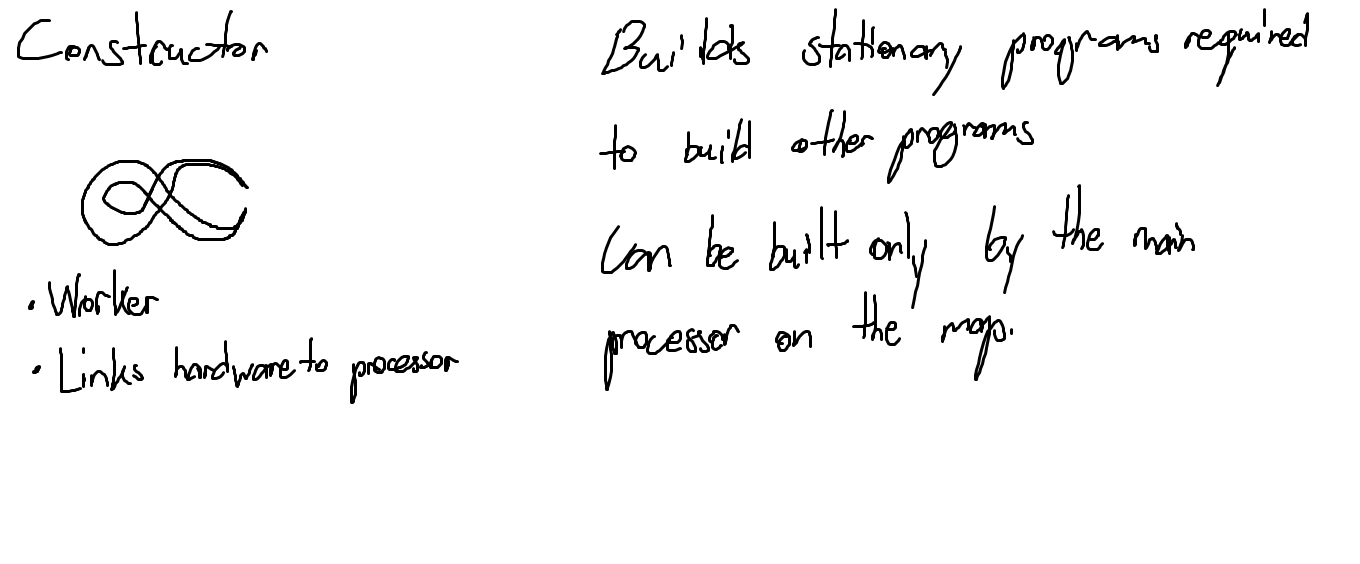 Constructor
• Worker
• Links hardware to processor
Builds stationary programs required
to build other programs
Can be built only by the main
processor on the map.